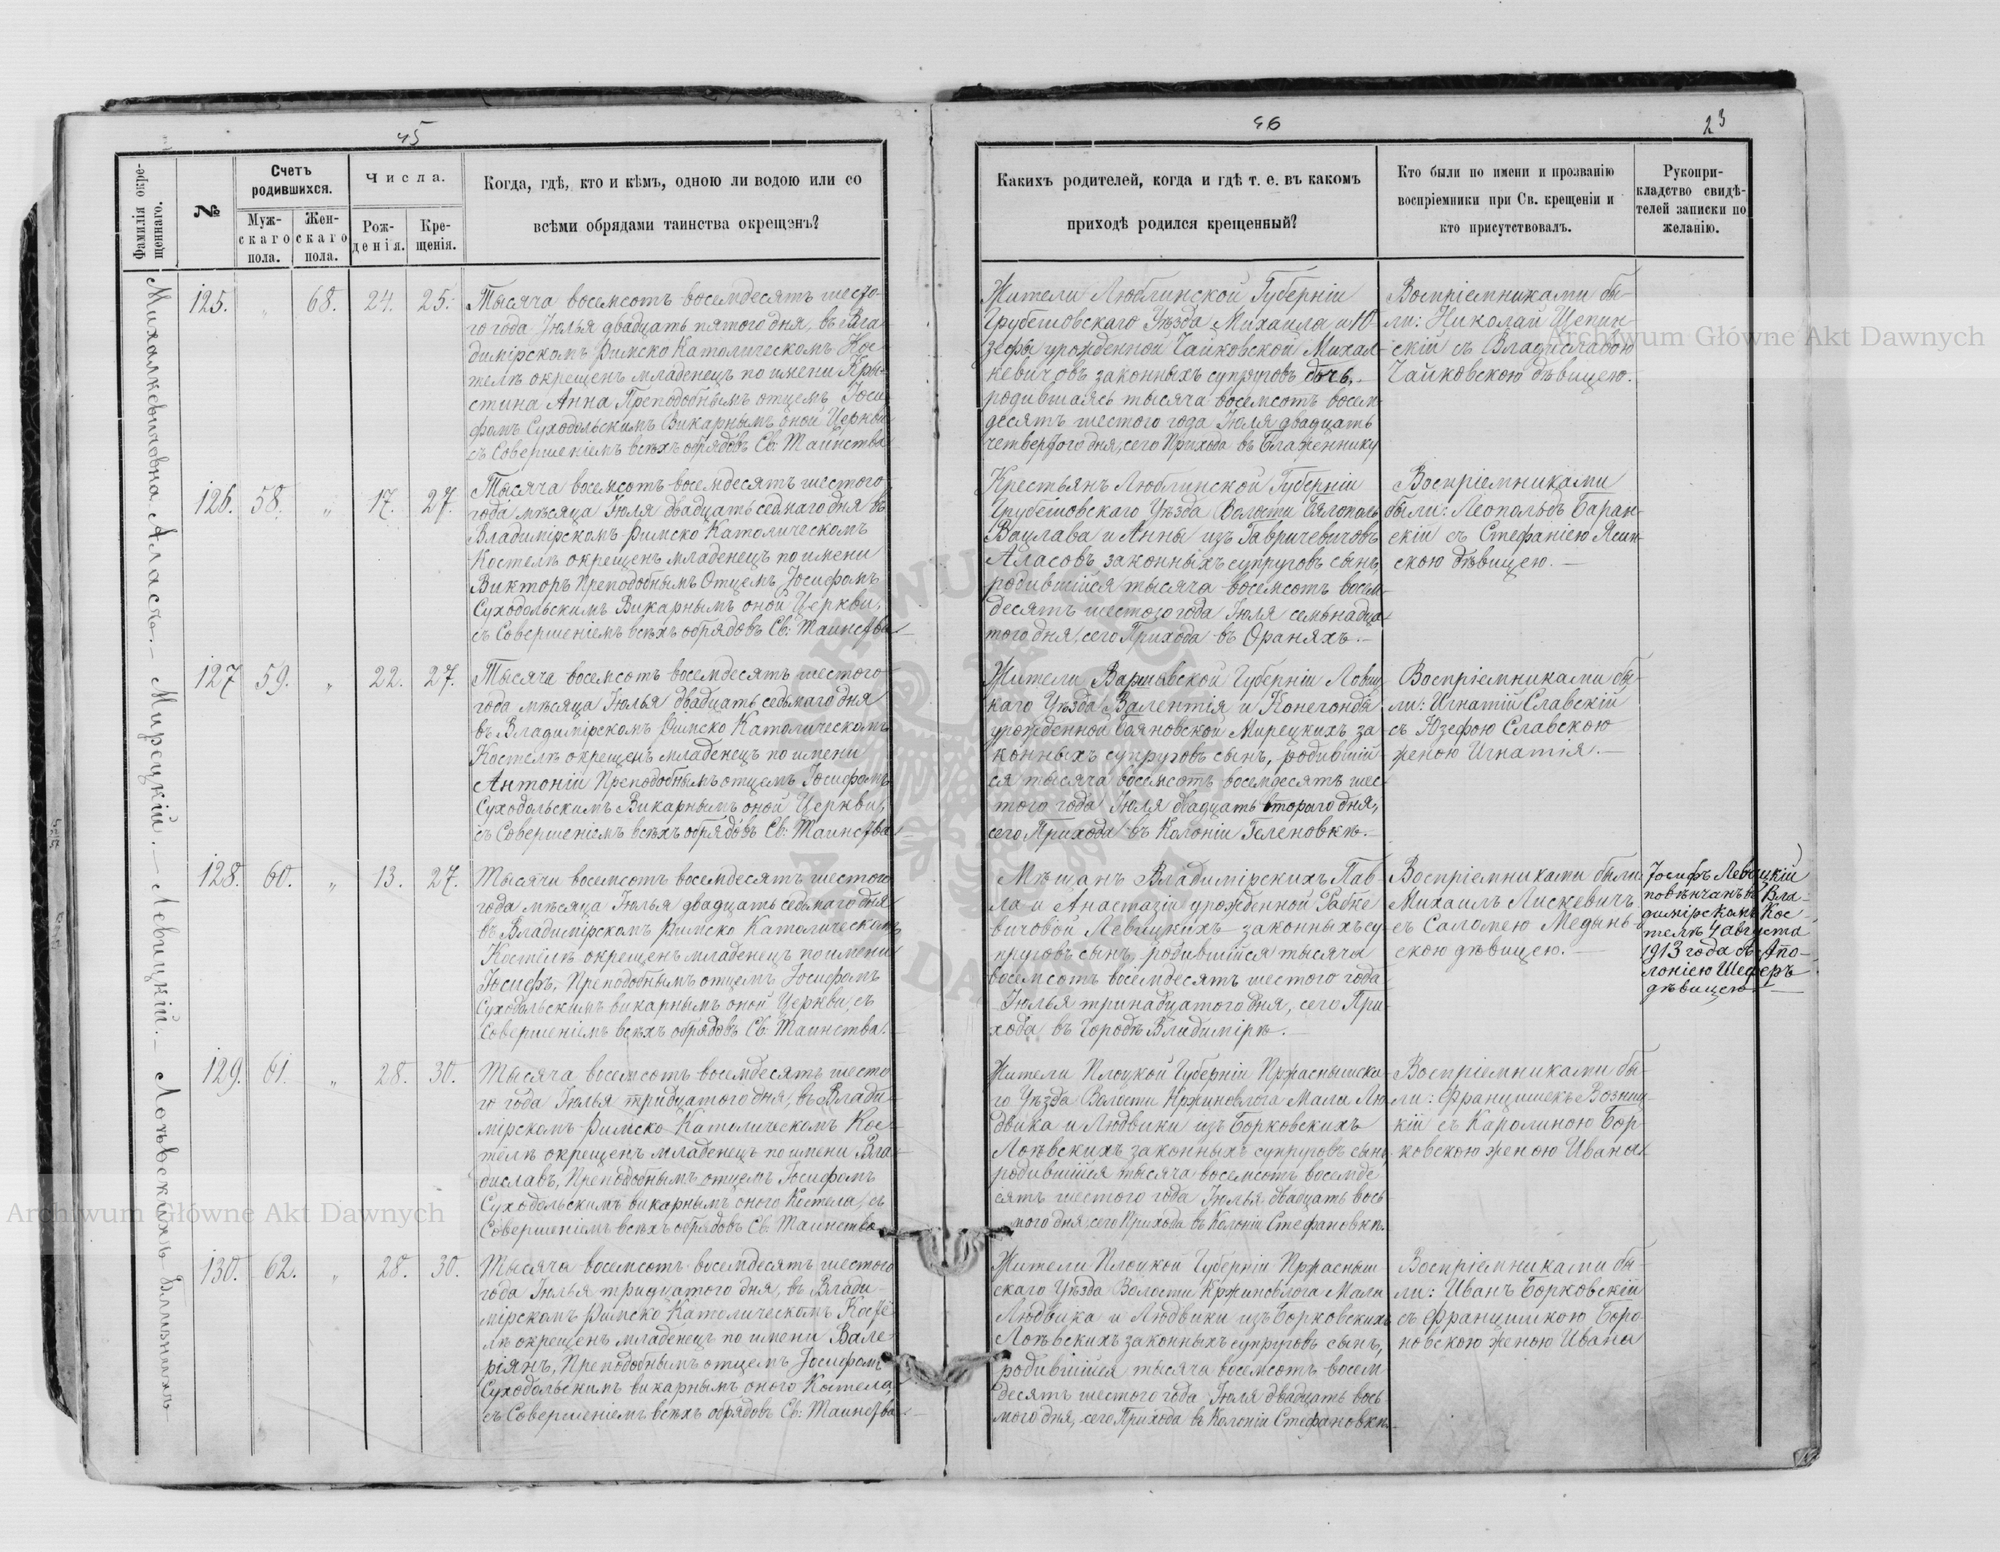 45
Фамилія окре-
щеннаго.
№
Счетъ
родившихся.
Муж-
скаго
пола.
Жен-
скаго
пола.
Числа.
Рож-
денія.
Кре-
щенія.
Когда, гдѣ, кто и кѣмъ, одною ли водою или со
всѣми обрядами таинства окрещэнъ?
Михалкевичовна Аласъ. — Мирецкій. — Левицкій. — Лоевскихъ близнятъ
125. „ 68. 24. 25.
Тысяча восемсотъ восемдесятъ шесто-
го года Іюлья двадцать пятого дня, въ Вла
димірскомъ Римско Католическомъ Кос-
телѣ окрещенъ младенецъ по имени Кры-
стина Анна Преподобнымъ отцемъ Іоси
фомъ Суходольскимъ Викарнымъ оной Церкви
съ Совершеніемъ всѣхъ обрядовъ Св: Таинства
126. 58. „ 17. 27.
Тысяча восемсотъ восемдесятъ шестого
года мѣсяца Іюля двадцать седмаго дня въ
Владимірскомъ Римско Католическомъ
Костелѣ окрещенъ младенецъ по имени
Викторъ Преподобнымъ Отцемъ Іосифомъ
Суходольскимъ Викарнымъ оной Церкви,
съ Совершеніемъ всѣхъ обрядовъ Св: Таинства
127 59. „ 22. 27.
Тысяча восемсотъ восемдесятъ шестого
года мѣсяца Іюлья двадцать седьмаго дня
въ Владимірскомъ Римско Католическомъ
Костелѣ окрещенъ младенецъ по имени
Антоній Преподобнымъ отцемъ Іосифомъ
Суходольскимъ Викарнымъ оной Церкви,
съ Совершеніемъ всѣхъ обрядовъ Св: Таинства
128. 60. „ 13. 27.
Тысячи восемсотъ восемдесятъ шестого
года мѣсяца Іюлья двадцать седьмаго дня
въ Владимірскомъ Римско Католическомъ
Костелѣ окрещенъ младенецъ по имени
Іосифъ, Преподобнымъ отцемъ Іосифомъ
Суходольскимъ викарнымъ оной Церкви, съ
Совершеніемъ всѣхъ обрядовъ Св: Таинства.
129. 61. „ 28. 30.
Тысяча восемсотъ восемдесятъ шесто
го года Іюлья тридцатого дня, въ Влади-
мірскомъ Римско Католическомъ Кос-
телѣ окрещенъ младенецъ по имени Вла
диславъ, Преподобнымъ отцемъ Іосифомъ
Суходольскимъ викарнымъ оного Костела, съ
Совершеніемъ всѣхъ обрядовъ Св: Таинства
130. 62. „ 28. 30.
Тысяча восемсотъ восемдесятъ шестого
года Іюлья тридцатого дня, въ Влади-
мірскомъ Римско Католическомъ Косте
лѣ окрещенъ младенецъ по имени Вале-
ріянъ, Преподобнымъ отцемъ Іосифомъ
Суходольскимъ викарнымъ оного Костела
съ Совершеніемъ всѣхъ обрядовъ Св: Таинства
46
23
Какихъ родителей, когда и гдѣ т. е. въ какомъ
приходѣ родился крещенный?
Кто были по имени и прозванію
воспріемники при Св. крещеніи и
кто присутствовалъ.
Рукопри-
кладство свидѣ-
телей записки по
желанію.
Жители Люблинской Губерніи
Грубешовскаго Уѣзда Михаила и Ю-
зефы урожденной Чайковской Михал-
кевичовъ законныхъ супруговъ дочь,
родившаясь тысяча восемсотъ восем-
десятъ шестого года Іюля двадцать
четвертого дня, сего Прихода въ Блаженнику
Воспріемниками бы-
ли: Николай Щепин-
скій съ Владиславою
Чайковскою дѣвицею.
Крестьянъ Люблинской Губерніи
Грубешовскаго Уѣзда Волости Бялополь
Вацлава и Анны изъ Гавричевичовъ
Аласовъ законныхъ супруговъ сынъ
родившійся тысяча восемсотъ восем-
десятъ шестого года Іюля семьнадца
того дня, сего Прихода въ Ораняхъ. —
Воспріемниками
были: Леопольдъ Баран-
скій съ Стефаніею Ясин-
скою дѣвицею. —
Жители Варшавской Губерніи Лович
каго Уѣзда Валентія и Конегонды
урожденной Бояновской Мирецкихъ за
конныхъ супруговъ сынъ, родившій
ся тысяча восемсотъ восемдесятъ шес-
того года Іюля двадцать второго дня,
сего Прихода въ Колоніи Геленовкѣ. —
Воспріемниками бы-
ли: Игнатій Славскій
съ Юзефою Славскою
женою Игнатія. —
Мѣщанъ Владимірскихъ Пав
ла и Анастазіи урожденной Рабке
вичовой Левицкихъ законныхъ су
пруговъ сынъ, родившійся тысяча
восемсотъ восемдесятъ шестого года
Іюлья тринадцатого дня, сего При
хода въ Городѣ Владимірѣ. —
Воспріемниками были
Михаилъ Лискевичъ
съ Саломею Медынь-
скою дѣвицею. —
Іосифъ Левицкій
повѣнчанъ въ Вла-
димірскомъ Кос
телѣ 4 августа
1913 года съ Апо-
лоніею Шеферъ
дѣвицею. —
Жители Плоцкой Губерніи Пржаснышска-
го Уѣзда Волости Кржиновлога Мала Лю
двика и Людвики изъ Борковскихъ
Лоевскихъ законныхъ супруговъ сынъ
родившійся тысяча восемсотъ восемде
сятъ шестого года Іюлья двадцать вось
мого дня, сего Прихода въ Колоніи Стефановкѣ.
Воспріемниками бы-
ли: Францишекъ Возниц-
кій съ Каролиною Бор
ковскою женою Ивана
Жители Плоцкой Губерніи Прасныш-
скаго Уѣзда Волости Кржиновлога Мала
Людвика и Людвики изъ Борковскихъ
Лоевскихъ законныхъ супруговъ сынъ,
родившійся тысяча восемсотъ восем
десятъ шестого года Іюля двадцать вось
мого дня, сего Прихода въ Колоніи Стефановкѣ.
Воспріемниками бы-
ли: Иванъ Борковскій
съ Францишкою Боро
новскою женою Ивана
Archiwum Główne Akt Dawnych
Archiwum Główne Akt Dawnych